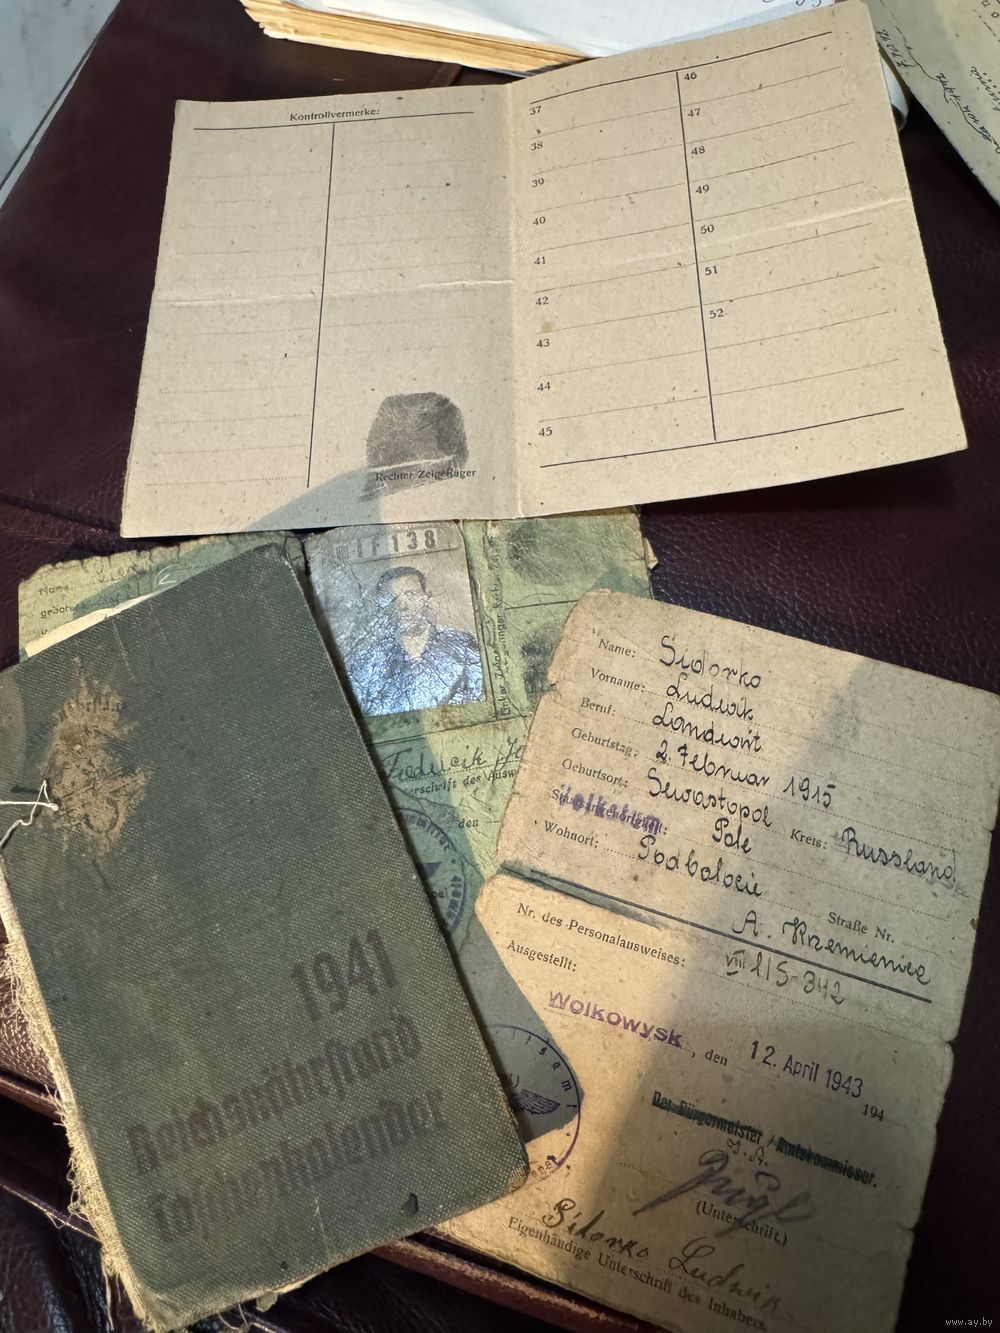 Kontrollvermerke:
37
38
39
40
41
42
43
44
45
46
47
48
49
50
51
52
Rechter Zeigefinger
IF 138
Name:
geboren
1941
Reichsnährstand
Taschenkalender
Name: Sidorko
Vorname: Ludwik
Beruf: Landwirt
Geburtstag: 2. Februar 1915
Geburtsort: Sewastopol
Kreis: Russland
Staatsangehörigkeit: Volkstum Pole
Wohnort: Podbolocie
Straße Nr.
A. Krzemienica
Nr. des Personalausweises: VIII 115-342
Ausgestellt:
Wolkowysk, den 12. April 1943 194
Der Bürgermeister / Amtskommissar.
I.A.
(Unterschrift.)
Sidorko Ludwik
Eigenhändige Unterschrift des Inhabers.
den
www.ay.by